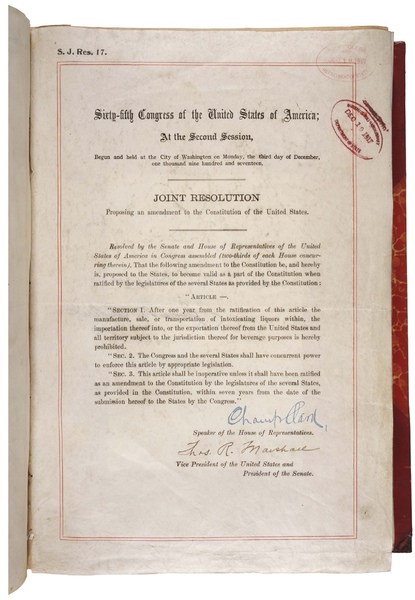 S. J. Res. 17.
Sixty-fifth Congress of the United States of America;
At the Second Session,
Begun and held at the City of Washington on Monday, the third day of December,
one thousand nine hundred and seventeen.
JOINT RESOLUTION
Proposing an amendment to the Constitution of the United States.
Resolved by the Senate and House of Representatives of the United
States of America in Congress assembled (two-thirds of each House concur-
ring therein), That the following amendment to the Constitution be, and hereby
is, proposed to the States, to become valid as a part of the Constitution when
ratified by the legislatures of the several States as provided by the Constitution:
"ARTICLE —.
"SECTION 1. After one year from the ratification of this article the
manufacture, sale, or transportation of intoxicating liquors within, the
importation thereof into, or the exportation thereof from the United States and
all territory subject to the jurisdiction thereof for beverage purposes is hereby
prohibited.
"SEC. 2. The Congress and the several States shall have concurrent power
to enforce this article by appropriate legislation.
"SEC. 3. This article shall be inoperative unless it shall have been ratified
as an amendment to the Constitution by the legislatures of the several States,
as provided in the Constitution, within seven years from the date of the
submission hereof to the States by the Congress."
Champ Clark,
Speaker of the House of Representatives.
Thos. R. Marshall
Vice President of the United States and
President of the Senate.
DEC 19 1917
DEPARTMENT OF STATE